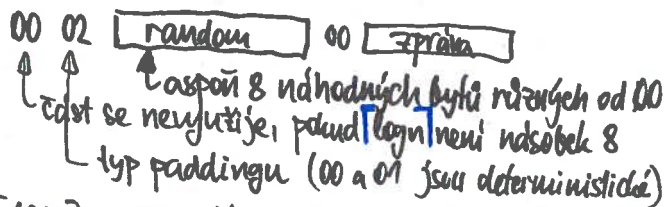 00 02 random 00 zpráva
aspoň 8 náhodných bytů různých od 00
část se nevyužije, pokud ⌈logn⌉ není násobek 8
typ paddingu (00 a 01 jsou deterministické)